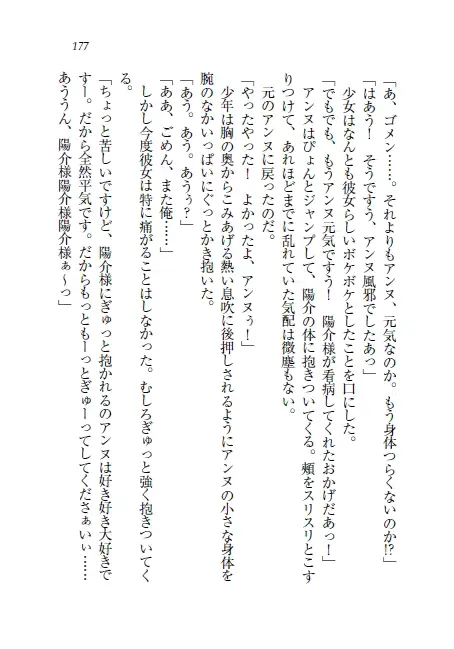 177
「あ、ゴメン……。それよりもアンヌ、元気なのか。もう身体つらくないのか!?」
「はあう!　そうですう、アンヌ風邪でしたあっ」
少女はなんとも彼女らしいボケボケとしたことを口にした。
「でもでも、もうアンヌ元気ですう!　陽介様が看病してくれたおかげだあっ!」
アンヌはぴょんとジャンプして、陽介の体に抱きついてくる。頬をスリスリとこす
りつけて、あれほどまでに乱れていた気配は微塵もない。
元のアンヌに戻ったのだ。
「やったやった!　よかったよ、アンヌぅ!」
少年は胸の奥からこみあげる熱い息吹に後押しされるようにアンヌの小さな身体を
腕のなかいっぱいにぐっとかき抱いた。
「あう。あう。あうぅ?」
「ああ、ごめん、また俺……」
しかし今度彼女は特に痛がることはしなかった。むしろぎゅっと強く抱きついてく
る。
「ちょっと苦しいですけど、陽介様にぎゅっと抱かれるのアンヌは好き好き大好きで
すー。だから全然平気です。だからもっともーっとぎゅーってしてくださぁいぃ……
あううん、陽介様陽介様陽介様ぁ〜っ」